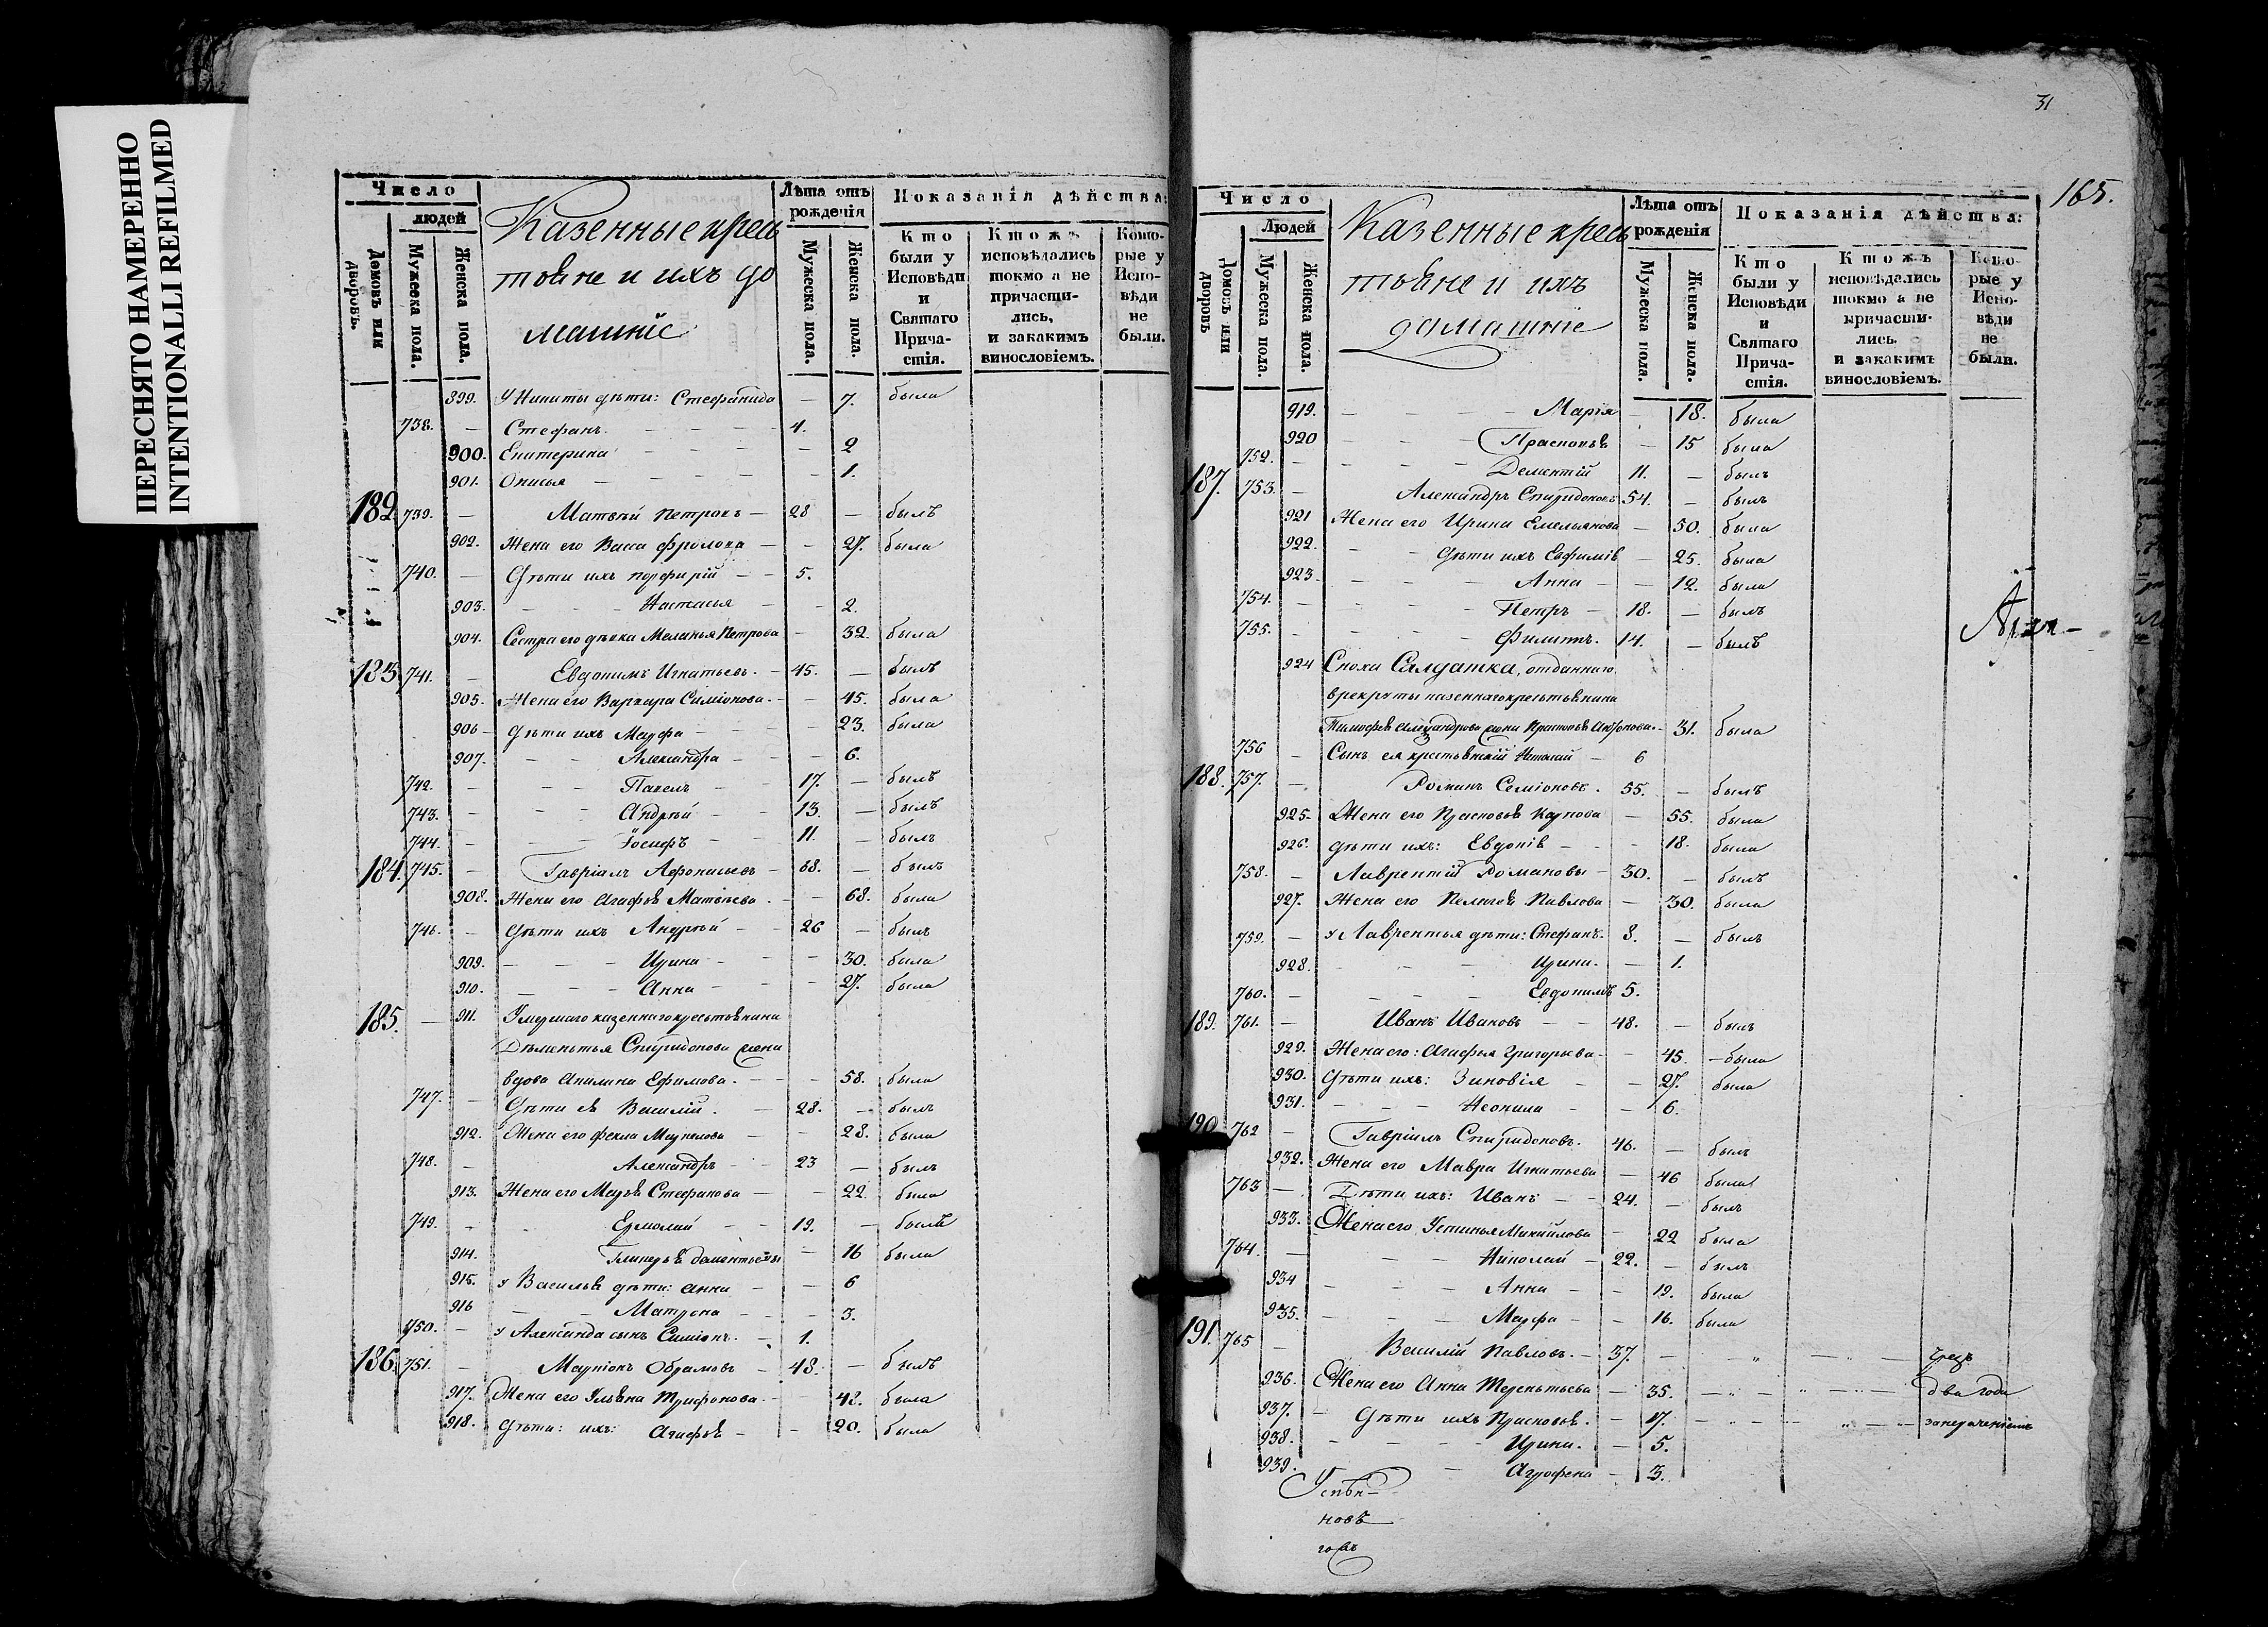 ПЕРЕСНЯТО НАМЕРЕННО
INTENTIONALLI REFILMED
Число
людей
Домовъ или дворовъ.
Мужеска пола.
Женска пола.
Казенные крес
тьяне и ихъ до
машніе
Лѣта отъ рожденія
Мужеска пола.
Женска пола.
Показанія дѣйства:
Кто были у Исповѣди и Святаго Прича-стія.
Ктожъ исповѣдались токмо а не причасти-лись, и закакимъ винословіемъ.
Кото-рые у Испо-вѣди не были.
899. У Никиты дѣти: Стефанида — 7. была
738. — Стефанъ — 4.
900. Екатерина — 2
901. Онисья — 1.
182. 739. — Матвѣй Петровъ — 28 — былъ
902. Жена его Васса Фролова — 27. была
740. — Дѣти ихъ Порфирій — 5.
903. — Настасья — 2.
904. Сестра его дѣвка Меланья Петрова — 32. была
183. 741. — Евдокимъ Игнатьевъ — 45. — былъ
905. Жена его Варвара Симіонова — 45. была
906 — Дѣти ихъ Марфа — 23. была
907. — Александра — 6.
742. — Павелъ — 17. — былъ
743. — Андрей — 13. — былъ
744. — Іосифъ — 11. — былъ
184. 745. — Гавріилъ Афонасьевъ — 68. — былъ
908. Жена его Агафья Матвѣева — 68. была
746. — Дѣти ихъ Андрей — 26 — былъ
909. — Ирина — 30. была
910. — Анна — 27. была
185. — 911. Умершаго казеннаго крестьянина
Дементья Спиридонова жена
вдова Акилина Ефимова — 58. была
747. — Дѣти ея Василій — 28. — былъ
912. Жена его Фекла Маркелова — 28. была
748. — Александръ — 23 — былъ
913. Жена его Марья Стефанова — 22 была
749. — Ермолай — 19. — былъ
914. Гликерья Дементьевы — 16 была
915. У Василья дѣти: Анна — 6
916 — Матрона — 3.
750. — У Александра сынъ Симіонъ — 1.
186. 751. — Маркіонъ Обрамовъ — 48. — былъ
917. Жена его Ульяна Трифонова — 48. была
918. Дѣти: ихъ: Агафья — 20. была
31
165.
Число
Людей
Домовъ или дворовъ
Мужеска пола.
Женска пола.
Казенные крес
тьяне и ихъ
домашніе
Лѣта отъ рожденія
Мужеска пола.
Женска пола.
Показанія дѣйства:
Кто были у Исповѣди и Святаго Прича-стія.
Ктожъ исповѣдались токмо а не причасти-лись. и закакимъ винословіемъ.
Кото-рые у Испо-вѣди не были.
919. — Марія — 18. была
920 — Прасковья — 15 была
752. — Дементій 11. — былъ
187. 753. — Александръ Спиридоновъ 54. — былъ
921 Жена его Ирина Емельянова — 50. была
922. — Дѣти ихъ Евфимія — 25. была
923. — Анна — 12. была
754. — Петръ — 18. — былъ
755. — Филиппъ. 14. — былъ
924 Сноха Салдатка, отданнаго
врекруты казеннаго крестьянина
Тимофея Александрова жена Прасковья — 31. была
756 — Сынъ ея крестьянскій Николай — 6
188. 757. — Романъ Семіоновъ. 55. — былъ
925. Жена его Прасковья Карпова — 55. была
926. Дѣти ихъ: Евдокія — 18. была
758. — Лаврентій Романовы — 30. — былъ
927. Жена его Пелагея Павлова — 30. была
759. — У Лаврентья дѣти: Стефанъ. 8. — былъ
928. — Ирина. — 1.
760. — Евдокимъ 5.
189. 761. — Иванъ Ивановъ — 48. — былъ
929. Жена его: Агафья Григорьева — 45. — была
930. Дѣти ихъ: Зиновія — 27. была
931. — Неонила — 6.
190 762 — Гавріилъ Спиридоновъ. 46. — былъ
932. Жена его Мавра Игнатьева — 46 была
763 — Дѣти ихъ: Иванъ — 24. — былъ
933. Жена его Устинья Михайлова — 22 была
764. — Николай — 22. — былъ
934 — Анна — 19. была
935. — Марфа — 16. была
191. 765 — Василій Павловъ. — 37. — чрезъ
936. Жена его Анна Терентьева — 35. — два года
937. — Дѣти ихъ Прасковья. — 17. —
938. — Ирина. — 5.
939. — Агрофена — 3.